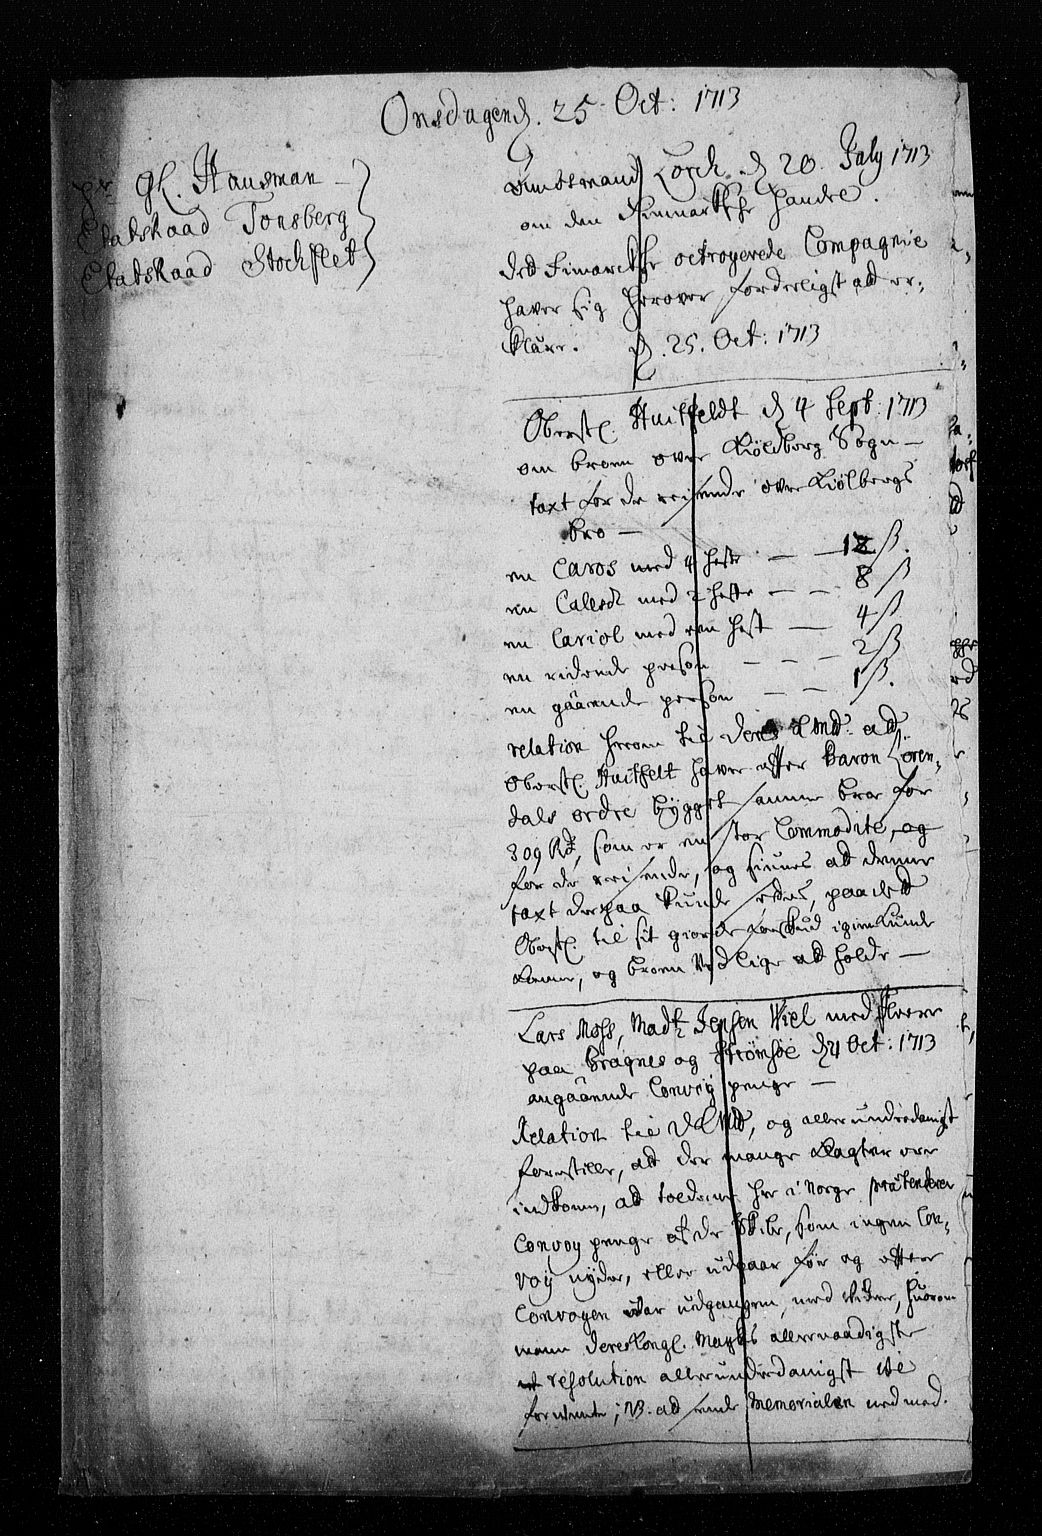 Onsdagen d. 25. Oct: 1713
Hr Gl. Hausman
Etatsraad Tonsberg
Etatsraad Stochflet
Amtmand Lorch d 20. July 1713
om den Finmarkske handel.
Det Finmarckske octroyerede Compagnie
haver sig herover forderligst att er-
klære. d. 25. Oct: 1713
Oberstl. Huitfeldt d 4 Sept: 1713
om broen over Kiølborg Sogn —
taxt for de reisende over Kiølbergs
bro —
en Caros med 4 heste — — 12 ß.
en Calesch med 2 heste — — 8 ß
en Cariol med een hest — 4 ß
en ridende person — — — 2 ß
en gaaende person — — 1 ß.
relation herom til Deres ad
Oberstl. Huitfelt haver efter Baron Løven-
dals ordre bygget samme broe for
309 Rd, som er en stor Commodite, og
for de reisende, og siunes att denne
taxt derpaa kunde settes, paa det
Oberstl. til sit giorde forskud igien kunde
komme, og broen ved lige att holde —
Lars Moss, Mads Jensen Wiel med fleere
paa Bragnes og Strømsøe d 4 Oct: 1713
angaaende Convoy penge —
Relation til og allerunderdanigst
forestille, att der mange klagter ere
indkomne, att tolderne her i Norge prætenderer
Convoy penge af de Skibe, som ingen Con-
voy nyder, eller udgaar før og efter
Convoyen var udgangen, med videre, huorom
mann Deres Kongl. Mayts allernaadigste
resolution allerunderdanigst vil
forvente; NB. at sende Memorialen ned med.